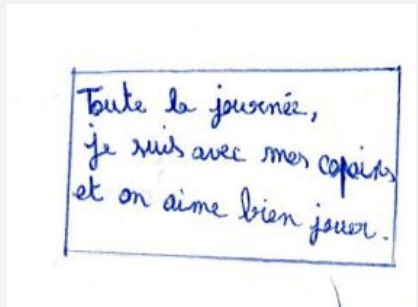 Toute la journée,
je suis avec mes copains
et on aime bien jouer.